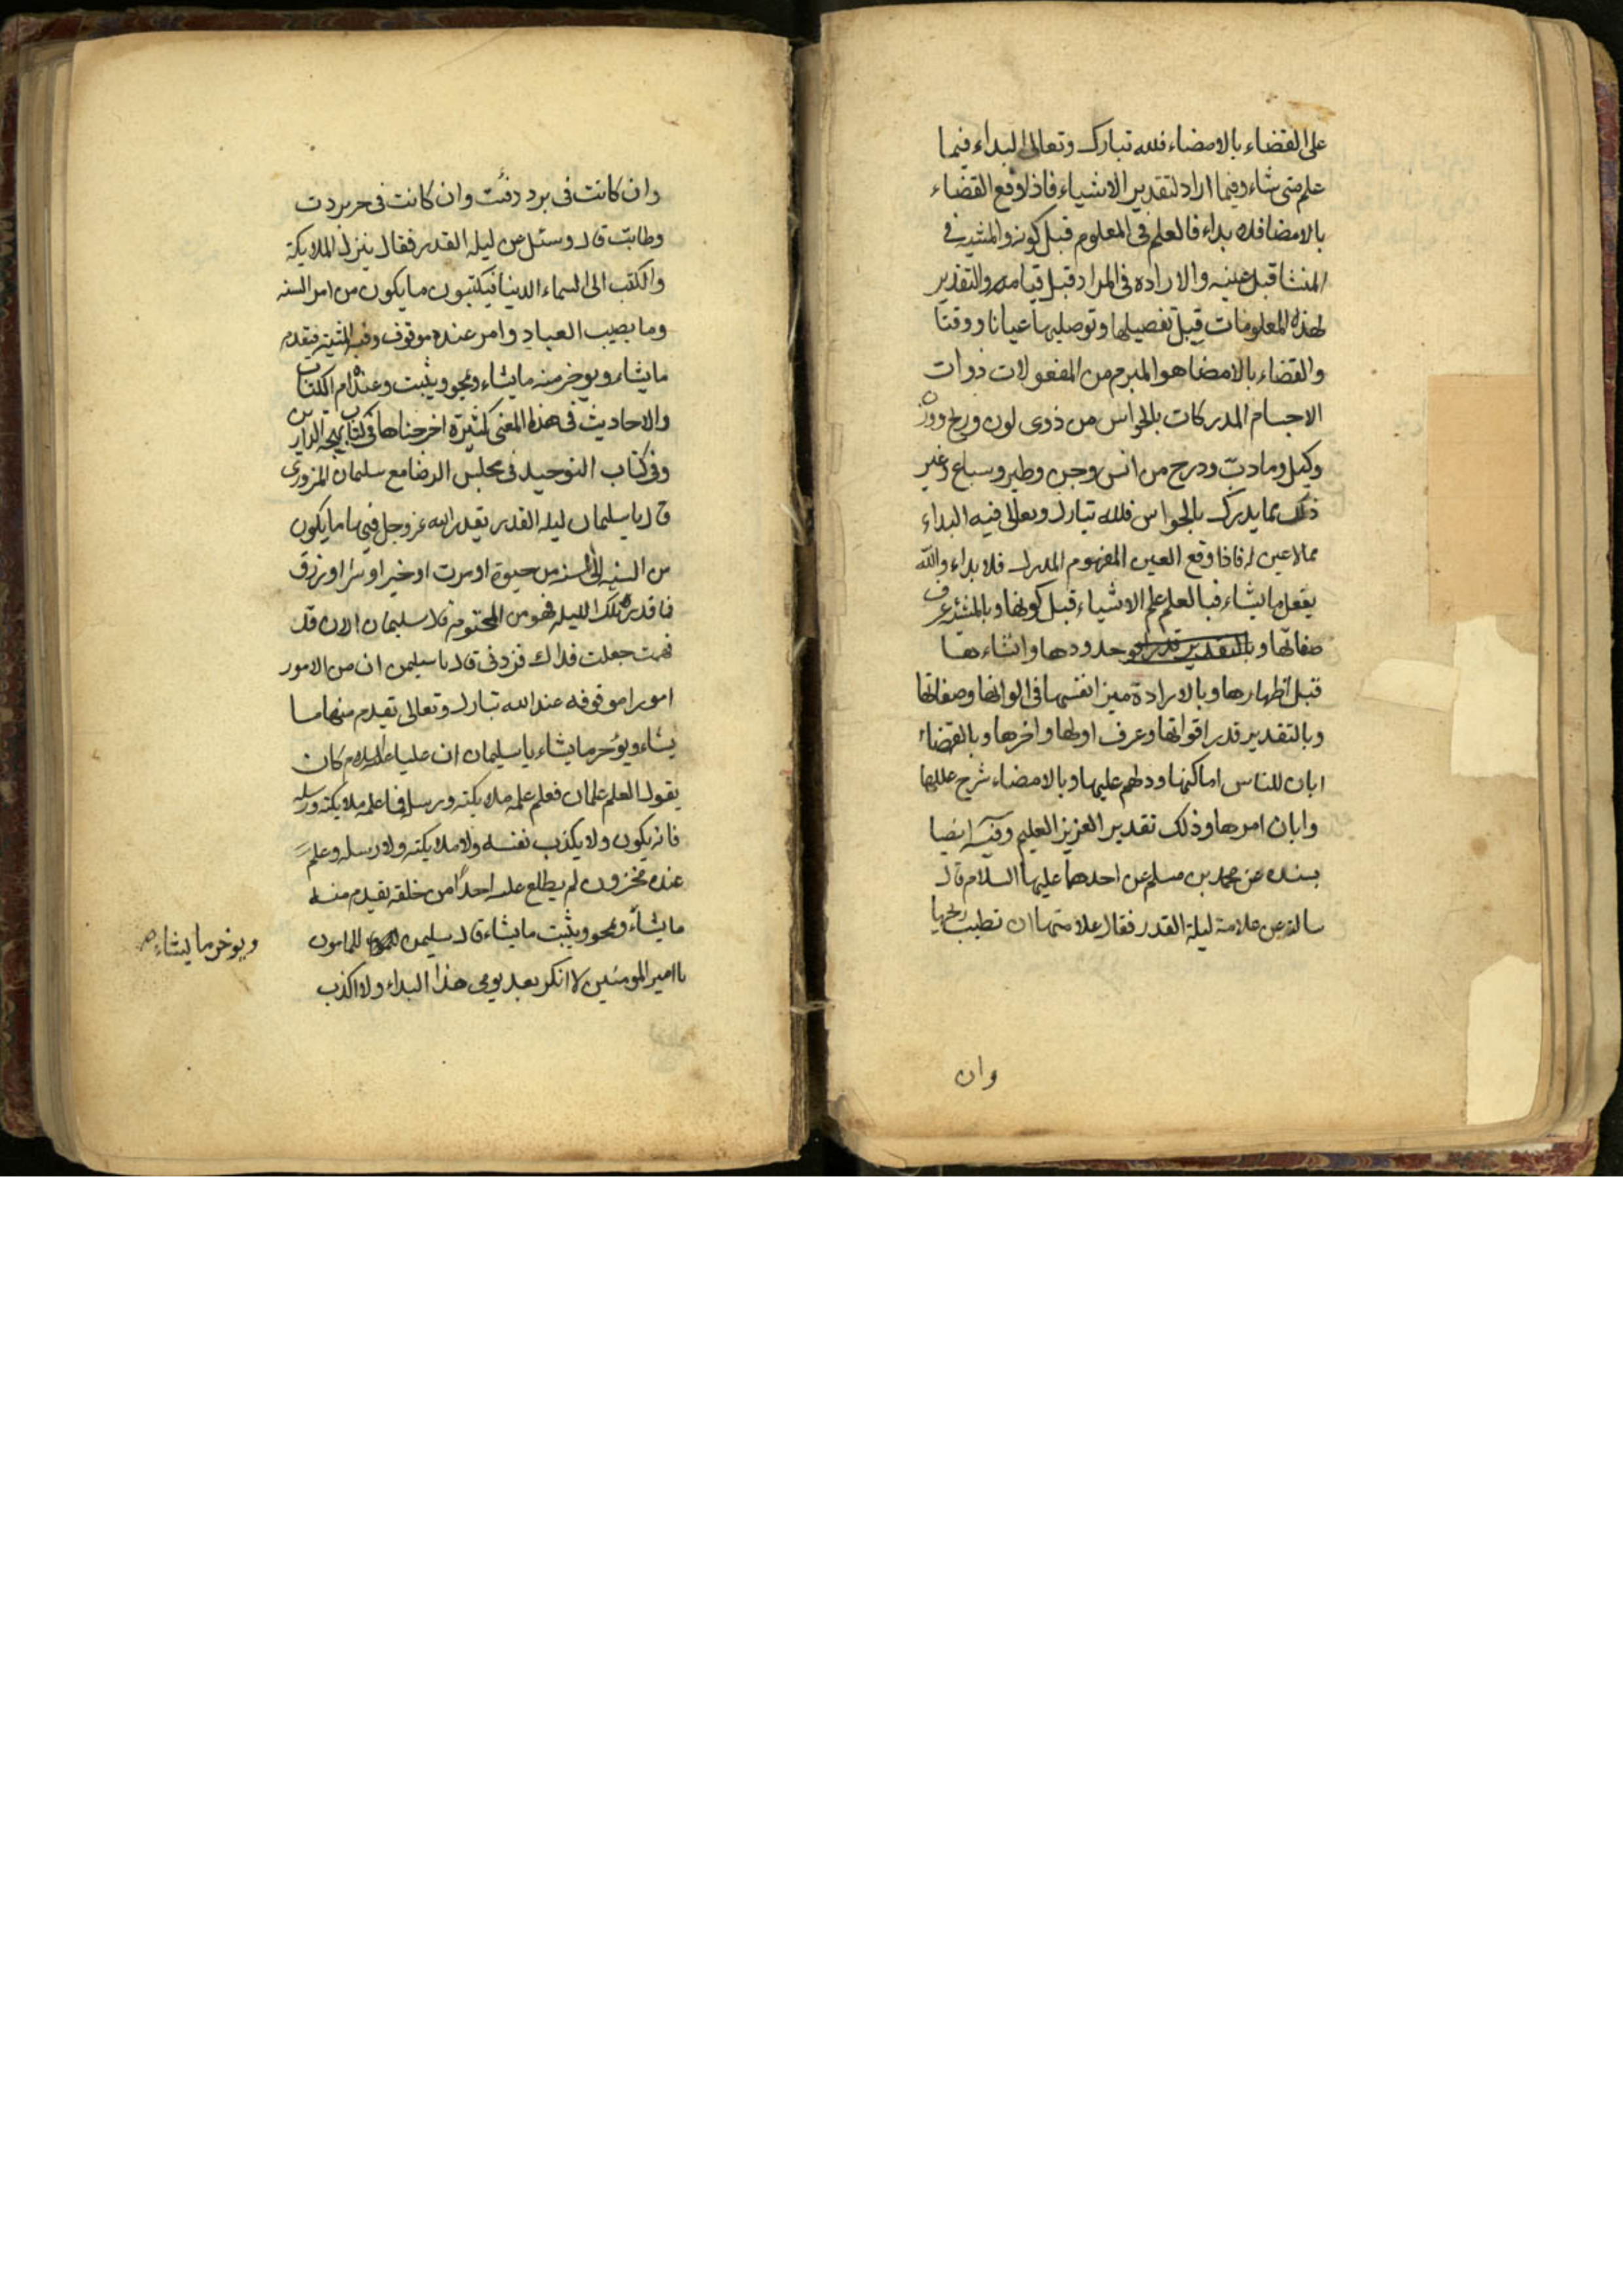 على القضاء بالامضاء فلله تبارك وتعالى البداء فيما
علم متى شاء وفيما اراد لتقدير الاشياء فاذا وقع القضاء
بالامضا فلا بداء فالعلم فى المعلوم قبل كونه والمشية فى
المنشا قبل عينه والاراده فى المراد قبل قيامه والتقدير
لهذه المعلومات قبل تفصيلها وتوصيلها عيانا ووقتا
والقضاء بالامضا هو المبرم من المفعولات ذوات
الاجسام المدركات بالحواس من ذوى لون وريح ووزن
وكيل وما دبّ ودرج من انس وجن وطير وسباع وغير
ذلك مما يدرك بالحواس فلله تبارك وتعالى فيه البداء
مما لا عين له فاذا وقع العين المفهوم المدرك فلا بداء والله
يفعل ما يشاء فبالعلم علم الاشياء قبل كونها وبالمشية عرف
صفاتها وبالتقدير قدر اقو حدودها وانشاءها
قبل اظهارها وبالارادة ميز انفسها فى الوانها وصفاتها
وبالتقدير قدر اقواتها وعرف اولها واخرها وبالقضاء
ابان للناس اماكنها ودلهم عليها وبالامضاء شرح عللها
وابان امرها وذلك تقدير العزيز العليم وفيه ايضا
بسنده عن محمد بن مسلم عن احدهما عليهما السلام قال
سالته عن علامة ليلة القدر فقال علامتها ان تطيب ريحها
وان
وان كانت فى برد دفئت وان كانت فى حر بردت
وطابت قال وسئل عن ليله القدر فقال ينزل الملايكة
والكتب الى السماء الدنيا فيكتبون ما يكون من امر السنه
وما يصيب العباد وامر عنده موقوف وفيه المشية فيقدم
ما يشاء ويوخر منه ما يشاء ويمحو ويثبت وعنده ام الكتاب
والاحاديث فى هذا المعنى كثيرة اخرجناها فى كتاب
وفى كتاب التوحيد فى مجلس الرضا مع سليمان المروزى
قال يا سليمان ليله القدر يقدر الله عز وجل فيها ما يكون
من السنه الى السنه من حيوة او موت او خير او شر او رزق
فما قدره تلك الليله فهو من المحتوم قال سليمان الان قد
فهمت جعلت فداك فزدنى قال يا سليمن ان من الامور
امورا موقوفه عند الله تبارك وتعالى يقدم منها ما
يشاء ويؤخر ما يشاء يا سليمان ان عليا عليه السلام كان
يقول العلم علمان فعلم علمه ملايكته ورسله فما علمه ملايكته ورسله
فانه يكون ولا يكذب نفسه ولا ملايكته ولا رسله وعلم
عنده مخزون لم يطلع عليه احدًا من خلقه يقدم منه
ما يشاء ويمحو ويثبت ما يشاء قال سليمن للمامون
يا امير المومنين لا انكر بعد يومى هذا البداء ولا اكذب
ويوخر ما يشاء صح